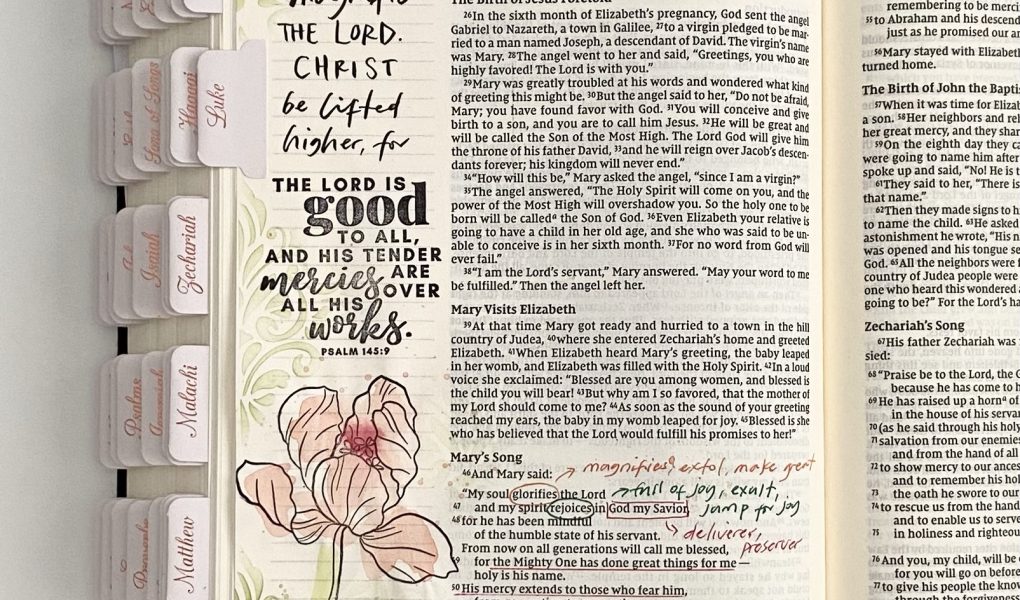 THE LORD.
CHRIST
be lifted
higher, for
THE LORD IS
good
TO ALL,
AND HIS TENDER
mercies ARE
OVER
ALL HIS
works.
PSALM 145:9
Song of Songs
Haggai
Luke
Isaiah
Zechariah
Psalms
Malachi
Matthew
The Birth of Jesus Foretold
26In the sixth month of Elizabeth's pregnancy, God sent the angel
Gabriel to Nazareth, a town in Galilee, 27to a virgin pledged to be mar-
ried to a man named Joseph, a descendant of David. The virgin's name
was Mary. 28The angel went to her and said, "Greetings, you who are
highly favored! The Lord is with you."
29Mary was greatly troubled at his words and wondered what kind
of greeting this might be. 30But the angel said to her, "Do not be afraid,
Mary; you have found favor with God. 31You will conceive and give
birth to a son, and you are to call him Jesus. 32He will be great and
will be called the Son of the Most High. The Lord God will give him
the throne of his father David, 33and he will reign over Jacob's descen-
dants forever; his kingdom will never end."
34"How will this be," Mary asked the angel, "since I am a virgin?"
35The angel answered, "The Holy Spirit will come on you, and the
power of the Most High will overshadow you. So the holy one to be
born will be calledᵃ the Son of God. 36Even Elizabeth your relative is
going to have a child in her old age, and she who was said to be un-
able to conceive is in her sixth month. 37For no word from God will
ever fail."
38"I am the Lord's servant," Mary answered. "May your word to me
be fulfilled." Then the angel left her.
Mary Visits Elizabeth
39At that time Mary got ready and hurried to a town in the hill
country of Judea, 40where she entered Zechariah's home and greeted
Elizabeth. 41When Elizabeth heard Mary's greeting, the baby leaped
in her womb, and Elizabeth was filled with the Holy Spirit. 42In a loud
voice she exclaimed: "Blessed are you among women, and blessed is
the child you will bear! 43But why am I so favored, that the mother of
my Lord should come to me? 44As soon as the sound of your greeting
reached my ears, the baby in my womb leaped for joy. 45Blessed is she
who has believed that the Lord would fulfill his promises to her!"
Mary's Song
46And Mary said:
magnifies, extol, make great
"My soul glorifies the Lord
full of joy, exult,
47 and my spirit rejoices in God my Savior,
jump for joy
48for he has been mindful
of the humble state of his servant.
deliverer,
preserver
From now on all generations will call me blessed,
for the Mighty One has done great things for me—
holy is his name.
50His mercy extends to those who fear him,
remembering to be merci
55to Abraham and his descend
just as he promised our an
56Mary stayed with Elizabeth
turned home.
The Birth of John the Baptis
57When it was time for Elizab
a son. 58Her neighbors and rel
her great mercy, and they shar
59On the eighth day they ca
were going to name him after
spoke up and said, "No! He is t
61They said to her, "There is
that name."
62Then they made signs to hi
to name the child. 63He asked
astonishment he wrote, "His n
was opened and his tongue se
God. 65All the neighbors were f
country of Judea people were
one who heard this wondered a
going to be?" For the Lord's ha
Zechariah's Song
67His father Zechariah was
sied:
68"Praise be to the Lord, the G
because he has come to h
69He has raised up a hornᵃ of
in the house of his servan
70(as he said through his holy
71salvation from our enemies
and from the hand of all
72to show mercy to our ances
and to remember his hol
73 the oath he swore to our
74to rescue us from the hand
and to enable us to serve
75 in holiness and righteou
76And you, my child, will be c
for you will go on before
77to give his people the know
through the forgiveness